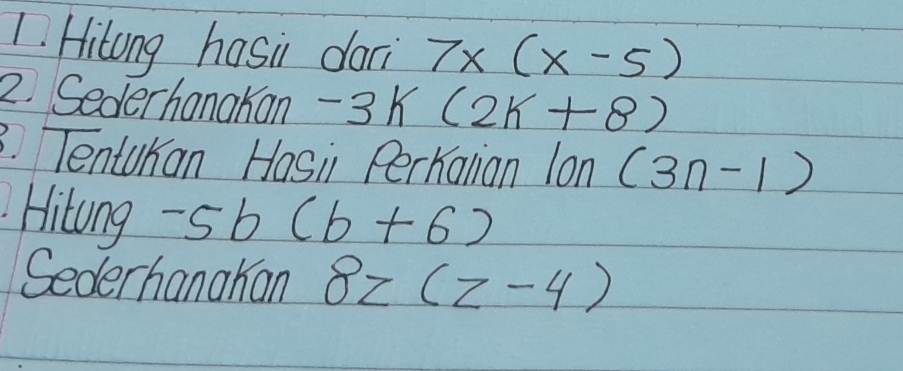 1. Hitung hasil dari 7x (x - 5)
2. Sederhanakan -3k (2k + 8)
3. Tentukan Hasil Perkalian 10n (3n - 1)
. Hitung -5b (b + 6)
Sederhanakan 8z (z - 4)